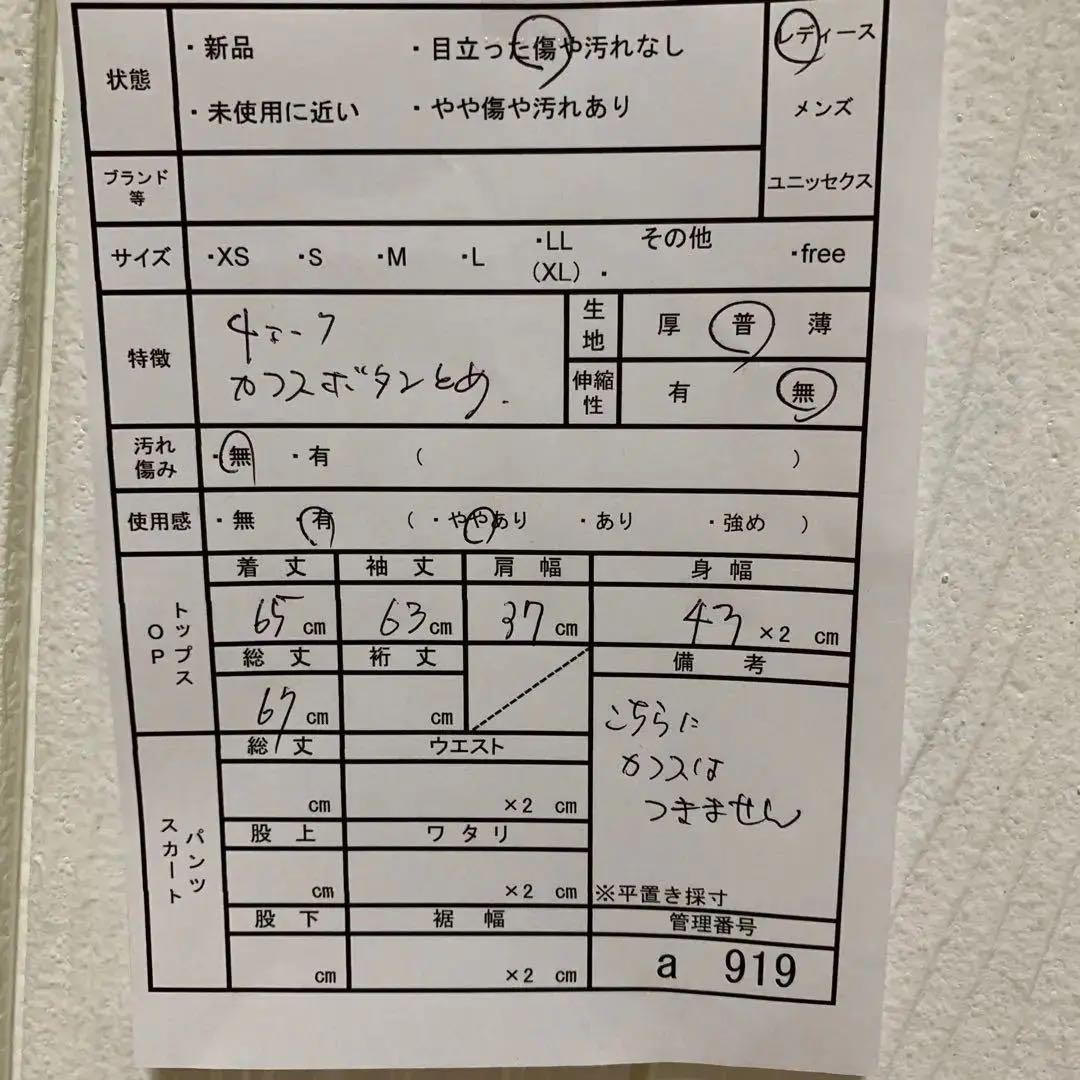 状態
・新品
・目立った傷や汚れなし
・未使用に近い
・やや傷や汚れあり
レディース
メンズ
ユニッセクス
ブランド
等
サイズ
・XS ・S ・M ・L ・LL
(XL)
その他
・
・free
特徴
カフスボタンとめ.
生地
厚 普 薄
伸縮性
有 無
汚れ
傷み
・無 ・有 ( )
使用感
・無 ・有 (・ややあり ・あり ・強め )
トップス
OP
着丈 袖丈 肩幅 身幅
65cm 63cm 37cm 43×2 cm
総丈 裄丈
67cm cm
備考
こちらに
カフスは
つきません
※平置き採寸
パンツ
スカート
総丈 ウエスト
cm ×2 cm
股上 ワタリ
cm ×2 cm
股下 裾幅
cm ×2 cm
管理番号
a 919